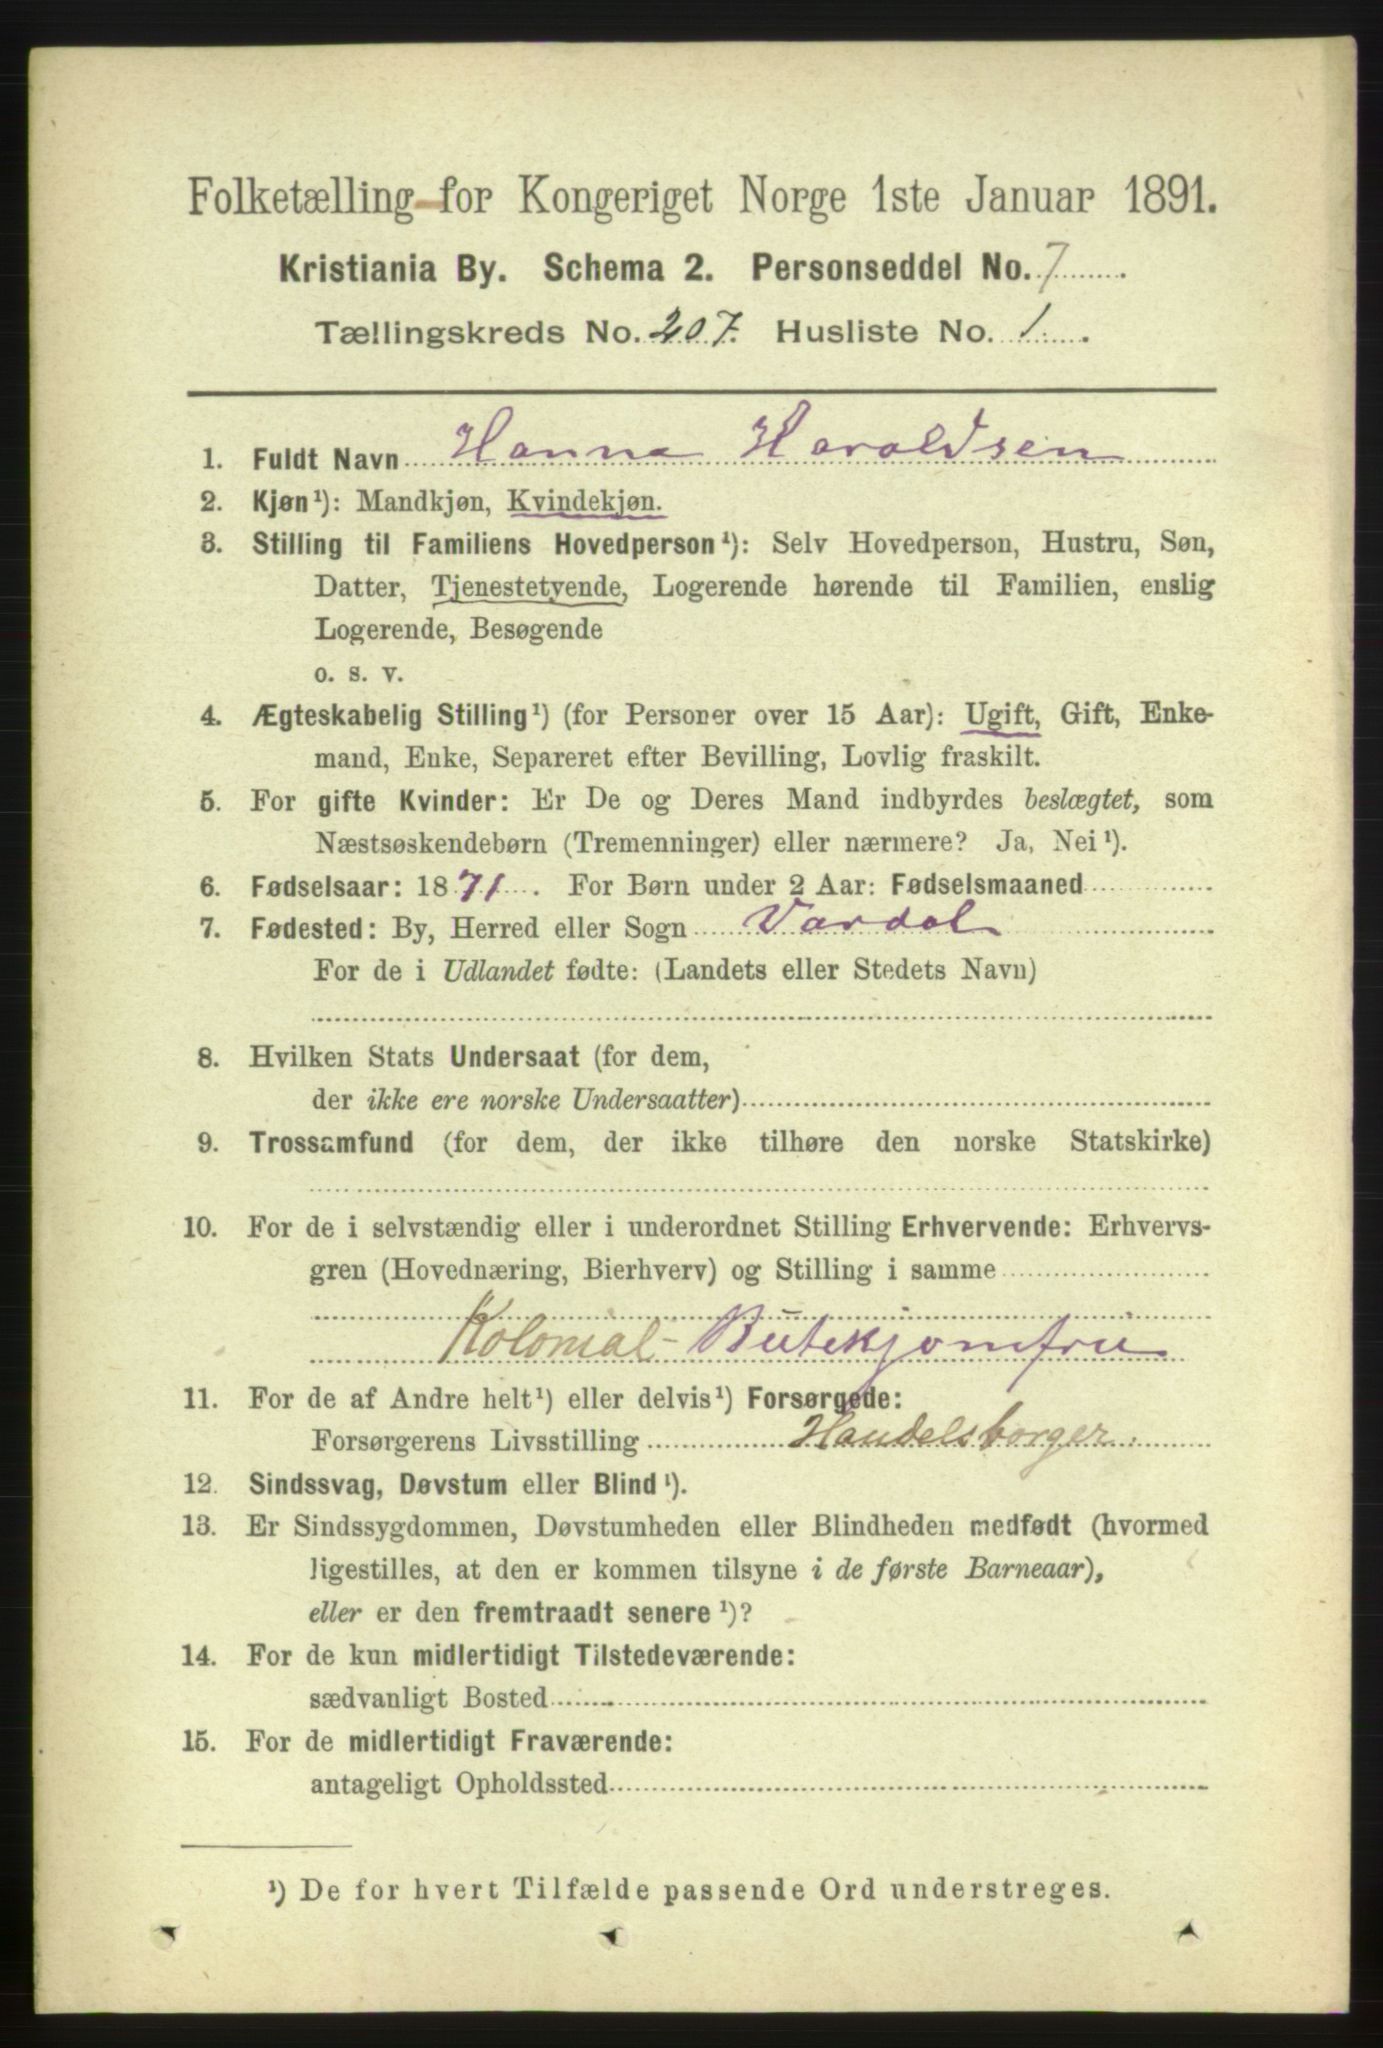 Folketælling for Kongeriget Norge 1ste Januar 1891.
Kristiania By. Schema 2. Personseddel No. 7
Tællingskreds No. 207. Husliste No. 1
1. Fuldt Navn Hanna Haraldsen
2. Kjøn¹): Mandkjøn, Kvindekjøn.
3. Stilling til Familiens Hovedperson¹): Selv Hovedperson, Hustru, Søn,
Datter, Tjenestetyende, Logerende hørende til Familien, enslig
Logerende, Besøgende
o. s. v.
4. Ægteskabelig Stilling¹) (for Personer over 15 Aar): Ugift, Gift, Enke-
mand, Enke, Separeret efter Bevilling, Lovlig fraskilt.
5. For gifte Kvinder: Er De og Deres Mand indbyrdes beslægtet, som
Næstsøskendebørn (Tremenninger) eller nærmere? Ja, Nei¹).
6. Fødselsaar: 1871. For Børn under 2 Aar: Fødselsmaaned
7. Fødested: By, Herred eller Sogn Vardal
For de i Udlandet fødte: (Landets eller Stedets Navn)
8. Hvilken Stats Undersaat (for dem,
der ikke ere norske Undersaatter)
9. Trossamfund (for dem, der ikke tilhøre den norske Statskirke)
10. For de i selvstændig eller i underordnet Stilling Erhvervende: Erhvervs-
gren (Hovednæring, Bierhverv) og Stilling i samme
Kolonial- Butekjomfru
11. For de af Andre helt¹) eller delvis¹) Forsørgede:
Forsørgerens Livsstilling Handelsborger.
12. Sindssvag, Døvstum eller Blind¹).
13. Er Sindssygdommen, Døvstumheden eller Blindheden medfødt (hvormed
ligestilles, at den er kommen tilsyne i de første Barneaar),
eller er den fremtraadt senere¹)?
14. For de kun midlertidigt Tilstedeværende:
sædvanligt Bosted
15. For de midlertidigt Fraværende:
antageligt Opholdssted
¹) De for hvert Tilfælde passende Ord understreges.